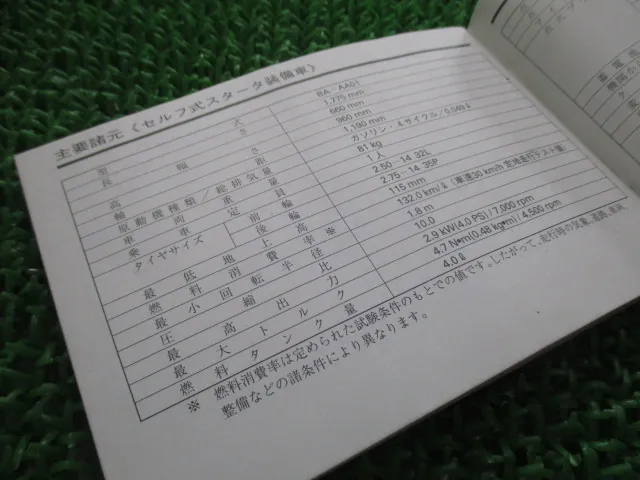 主要諸元〈セルフ式スタータ装備車〉
型式 BA-AA01
長さ 1,775 mm
幅 660 mm
高さ 960 mm
軸距 1,190 mm
原動機種類／総排気量 ガソリン・4サイクル／0.049ℓ
車両重量 81 kg
乗車定員 1人
タイヤサイズ 前輪 2.50-14 32L
後輪 2.75-14 35P
最低地上高 115 mm
燃料消費率※ 132.0 km/ℓ（車速30 km/h 定地走行テスト値）
最小回転半径 1.8 m
圧縮比 10.0
最高出力 2.9 kW(4.0 PS)/7,000 rpm
最大トルク 4.7 N•m(0.48 kg•m)/4,500 rpm
燃料タンク量 4.0ℓ
※ 燃料消費率は定められた試験条件のもとでの値です。したがって、走行時の気象、道路、車両、
整備などの諸条件により異なります。